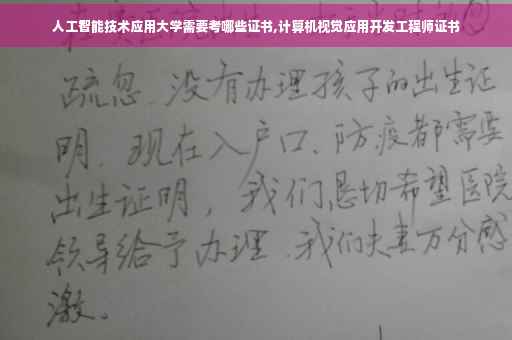 人工智能技术应用大学需要考哪些证书,计算机视觉应用开发工程师证书
疏忽、没有办理孩子的出生证
明、现在入户口、防疫都需要
出生证明，我们恳切希望医院
领导给予办理、我们夫妻万分感
激。